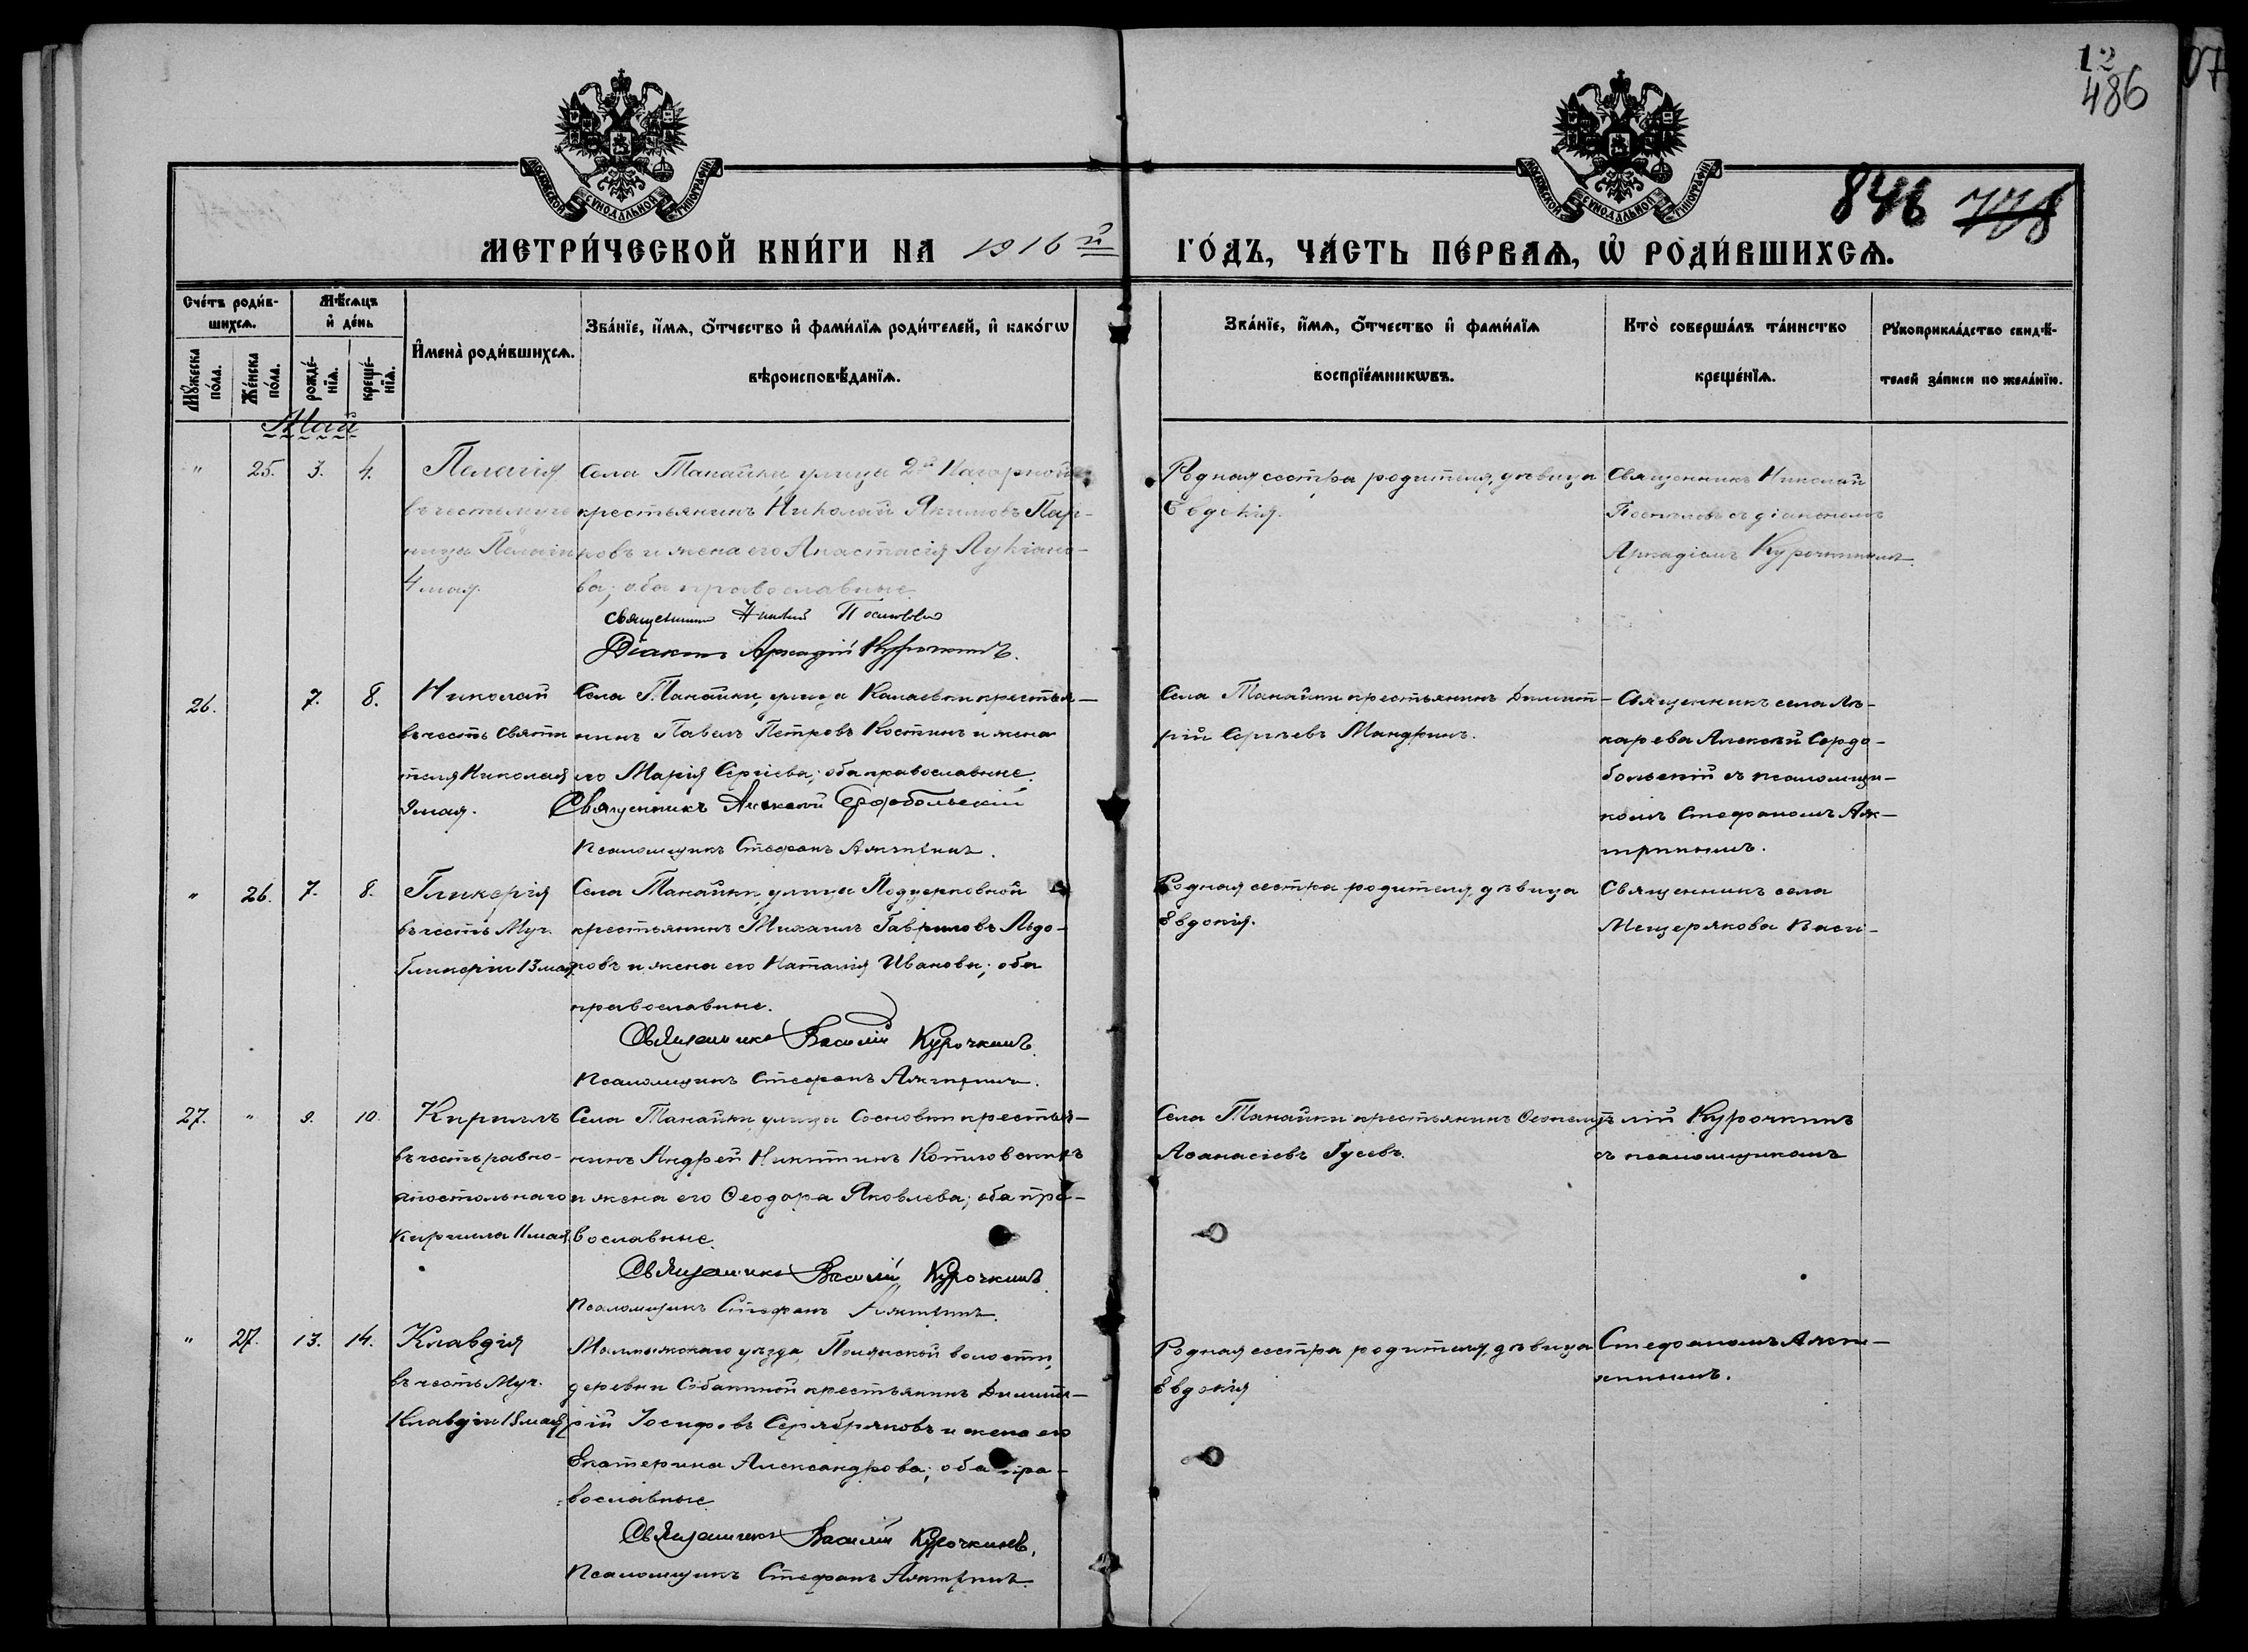 12
486
07
МОСКОВСКОЙ СѴНОДАЛЬНОЙ ТИПОГРАФІИ
МОСКОВСКОЙ СѴНОДАЛЬНОЙ ТИПОГРАФІИ
846
МЕТРИ́ЧЕСКОЙ КНИ́ГИ НА 1916й ГО́ДЪ, ЧА́СТЬ ПЕ́РВАѦ, Ѡ҆ РОДИ́ВШИХСѦ.
Сче́тъ роди́в-
шихсѧ.
Мꙋ́жеска по́ла.
Же́нска по́ла.
Мѣ́сѧцъ
и҆ де́нь
рожде́-
нїѧ.
креще́-
нїѧ.
И҆мена̀ роди́вшихсѧ.
Зва́нїе, и҆́мѧ, ѻ҆́тчество и҆ фами́лїѧ роди́телей, и҆ како́гѡ
вѣроисповѣ́данїѧ.
Зва́нїе, и҆́мѧ, ѻ҆́тчество и҆ фами́лїѧ
воспрїе́мникѡвъ.
Кто̀ соверша́лъ та́инство
креще́нїѧ.
Рꙋкоприкла́дство свидѣ́-
телей за́писи по жела́нїю.
Май
" 25. 3. 4.
Пелагія
въ честь муче
ницы Пелагіи
4 мая.
Села Танайки, улицы 2й Нагорной
крестьянинъ Николай Якимовъ
и жена его Анастасія Лукіано-
ва; оба православные.
Священникъ Николай
Діаконъ Аркадій Курочкинъ.
Родная сестра родителя, дѣвица
Евдокія.
Священникъ Николай
съ діакономъ
Аркадіемъ Курочкинымъ.
26. 7. 8.
Николай
въ честь Святи
теля Николая
9 мая.
Села Танайки, улицы Калаевки крестья-
нинъ Павелъ Петровъ Костинъ и жена
его Марія Сергіева; оба православные.
Священникъ Алексей Сердобольскій
Псаломщикъ Стефанъ
Села Танайки крестьянинъ Димит-
рій Сергѣевъ Мандринъ.
Священникъ села Ле-
карева Алексѣй Сердо-
больскій съ псаломщи-
комъ Стефаномъ
" 26. 7. 8.
Гликерія
въ честь Муч.
Гликеріи 13 мая.
Села Танайки, улицы Подцерковной
крестьянинъ Михаилъ Гавриловъ Лѣдо-
ровъ и жена его Наталія Иванова; оба
православные.
Священникъ Василій Курочкинъ.
Псаломщикъ Стефанъ
Родная сестра родителя, дѣвица
Евдокія.
Священникъ села
Мещерякова Васи-
27. " 9. 10.
Кириллъ
въ честь равно-
апостольнаго
Кирилла 11 мая.
Села Танайки, улицы Сосновки крестья-
нинъ Андрей Никитинъ
и жена его Ѳеодора Яковлева; оба пра-
вославные.
Священникъ Василій Курочкинъ.
Псаломщикъ Стефанъ
Села Танайки крестьянинъ
Аѳанасіевъ Гусевъ.
лій Курочкинъ
съ псаломщикомъ
" 27. 13. 14.
Клавдія
въ честь Муч.
Клавдіи 18 мая.
Малмыжскаго уѣзда, Полянской волости,
деревни Собакиной крестьянинъ Димит-
рій Іосифовъ Серебряковъ и жена его
Екатерина Александрова; оба пра-
вославные.
Священникъ Василій Курочкинъ.
Псаломщикъ Стефанъ
Родная сестра родителя, дѣвица
Евдокія
Стефаномъ